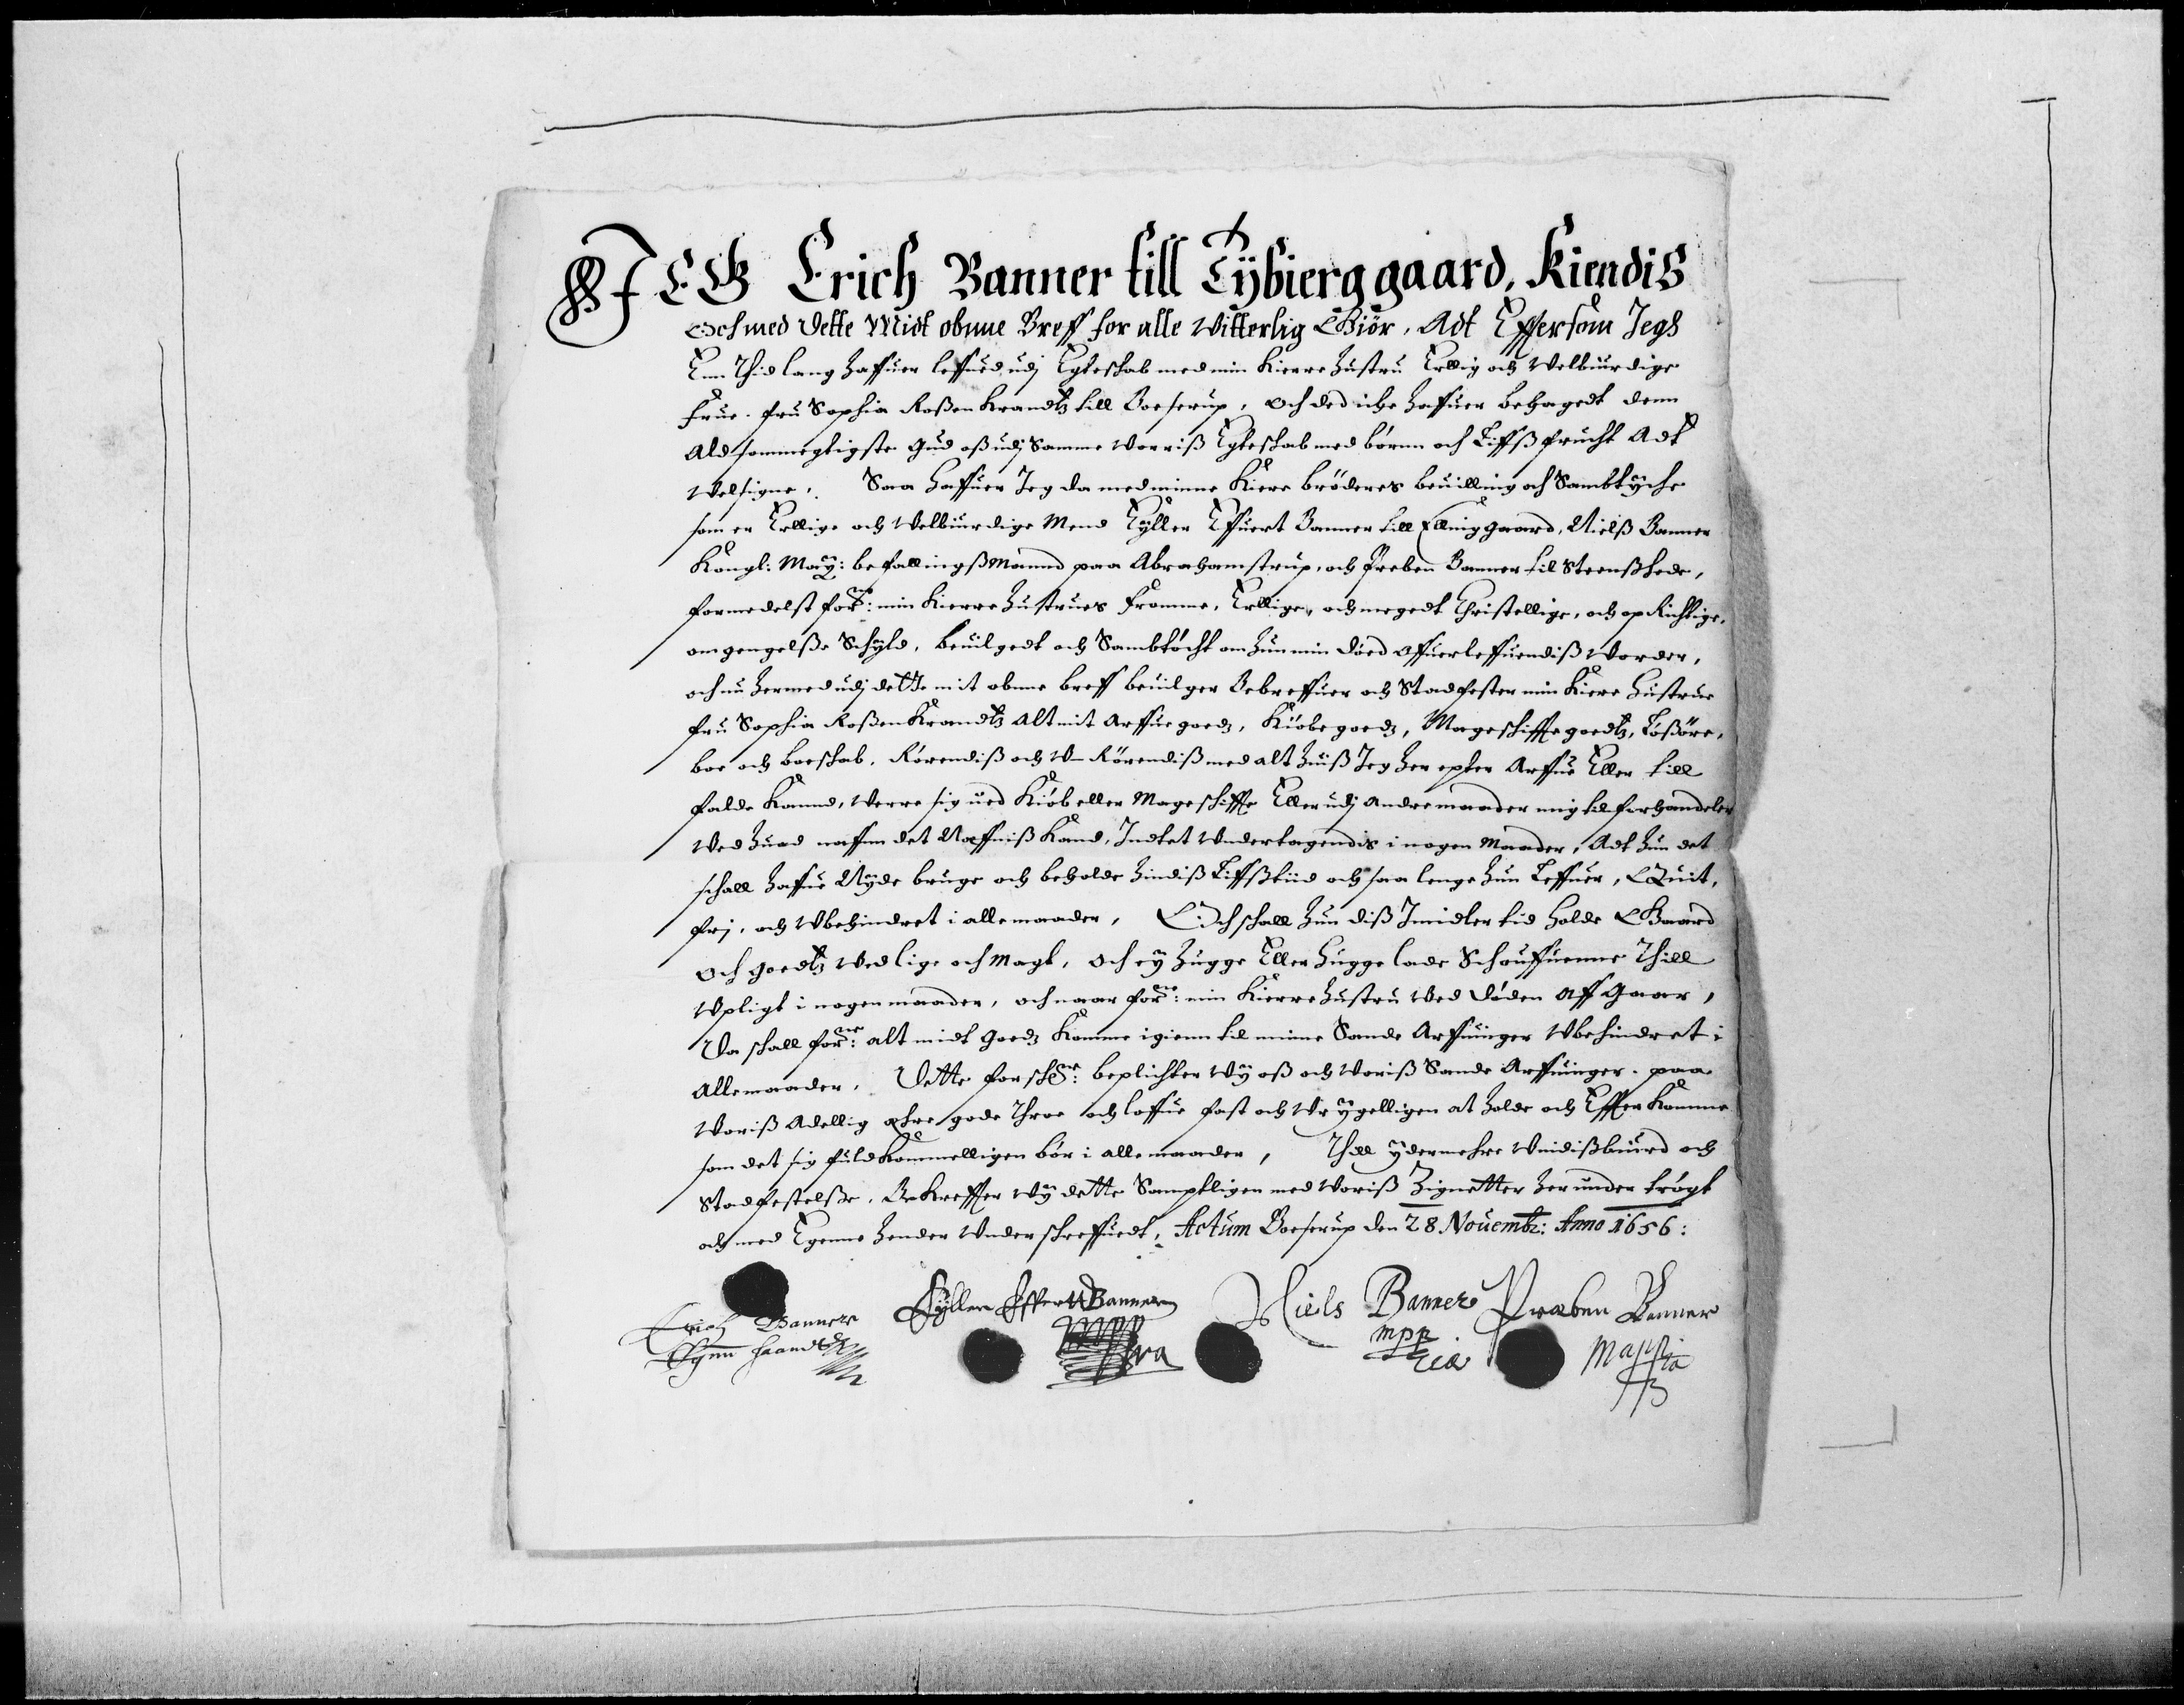 JEG Erich Banner till Tÿbierggaard, Kiendis
Och med dette Midt obnne Breff for alle Witterlig Giör, Adt Effersom Jegh
Enn Thid lang haffuer leffued udj Egteskab med min Kierre hustru Erllig och Welbiurdige
frue. fru Sophia Rosenkrandtz till Boeserup, och ded iche haffuer behagedt denn
Aldsommegtigste Gud oß udj Samme Worriß Egteskab med börnn och Liffß frucht Adt
Welsigne, Saa haffuer Jeg da med minne Kiere bröderes beuilling och Sambtÿche
som er Erllige och Welbiurdige Mend Eÿller Effuert Banner till Ellinggaard, Nielß Banner
Kongl: Maÿ: befallingßMannd paa Abrahamstrup, och Preben Banner til Steenßhede,
formedelst for:ne min Kierre hustrues fromme, Erllige, och megedt Christellige, och opRichtige,
omgengelße Schyld, beuilgedt och Sambtöcht om hun min död offuerleffuendiß Worder,
och nu hermed udj dette mit obnne breff beuilger Bebreffuer och Stadfester min Kiere Hustrue
fru Sophia RoßenKrandtz alt mit Arffue goedz, Kiöbe goedz, Mageschiffte goedtz, Lößöre,
boe och boeskab, Rörendiß och V-Rörendiß med alt huiß Jeg her epter Arffue Eller till
falde Kannd, Werre sig ued Kiöb eller Mageschiffte Eller udj Andre maader mig til forhandeler
Wed huad naffnn det Neffniß Kand, Indtet Undertagendis i nogen Maader, Adt hun det
schall haffue Nÿde bruge och beholde hindiß Liffßtiid och saa lenge hun Leffuer, Quit,
frj, och Ubehindret i alle maader, Och schall hun diß Imidler tid holde Gaard
och goedtz Wed lige och Magt, och eÿ hugge Eller hugge lade Schouffuenne Thill
Upligt i nogen maader, och naar for:ne min Kierre hustru Wed döden aff Gaar,
Da schall for:ne alt midt goedz Komme igienn til minne Sande Arffuinger Ubehindret i
Alle maader. Dette forsch:ne beplichter Wÿ oß och Woriß Sande Arffuinger paa
Woriß Adellig ehre gode Throe och loffue fast och Urÿgelligen at holde och EffterKomme
som det sig fuldKommelligen bör i alle maader, Thill ÿdermehre Uindißbiurd och
Stadfestelße, Bekreffter Wÿ dette Samptligen med Woriß Zignetter her under trögt
och med Egenne hender Underschreffuedt, Actum Boeserup den 28 Nouembr: Anno 1656:
Erich Banner
Egenn haandt
Eÿller Effert Banner
mpp
ria
Niels Banner
mpp
ria
Præben Banner
Mappria